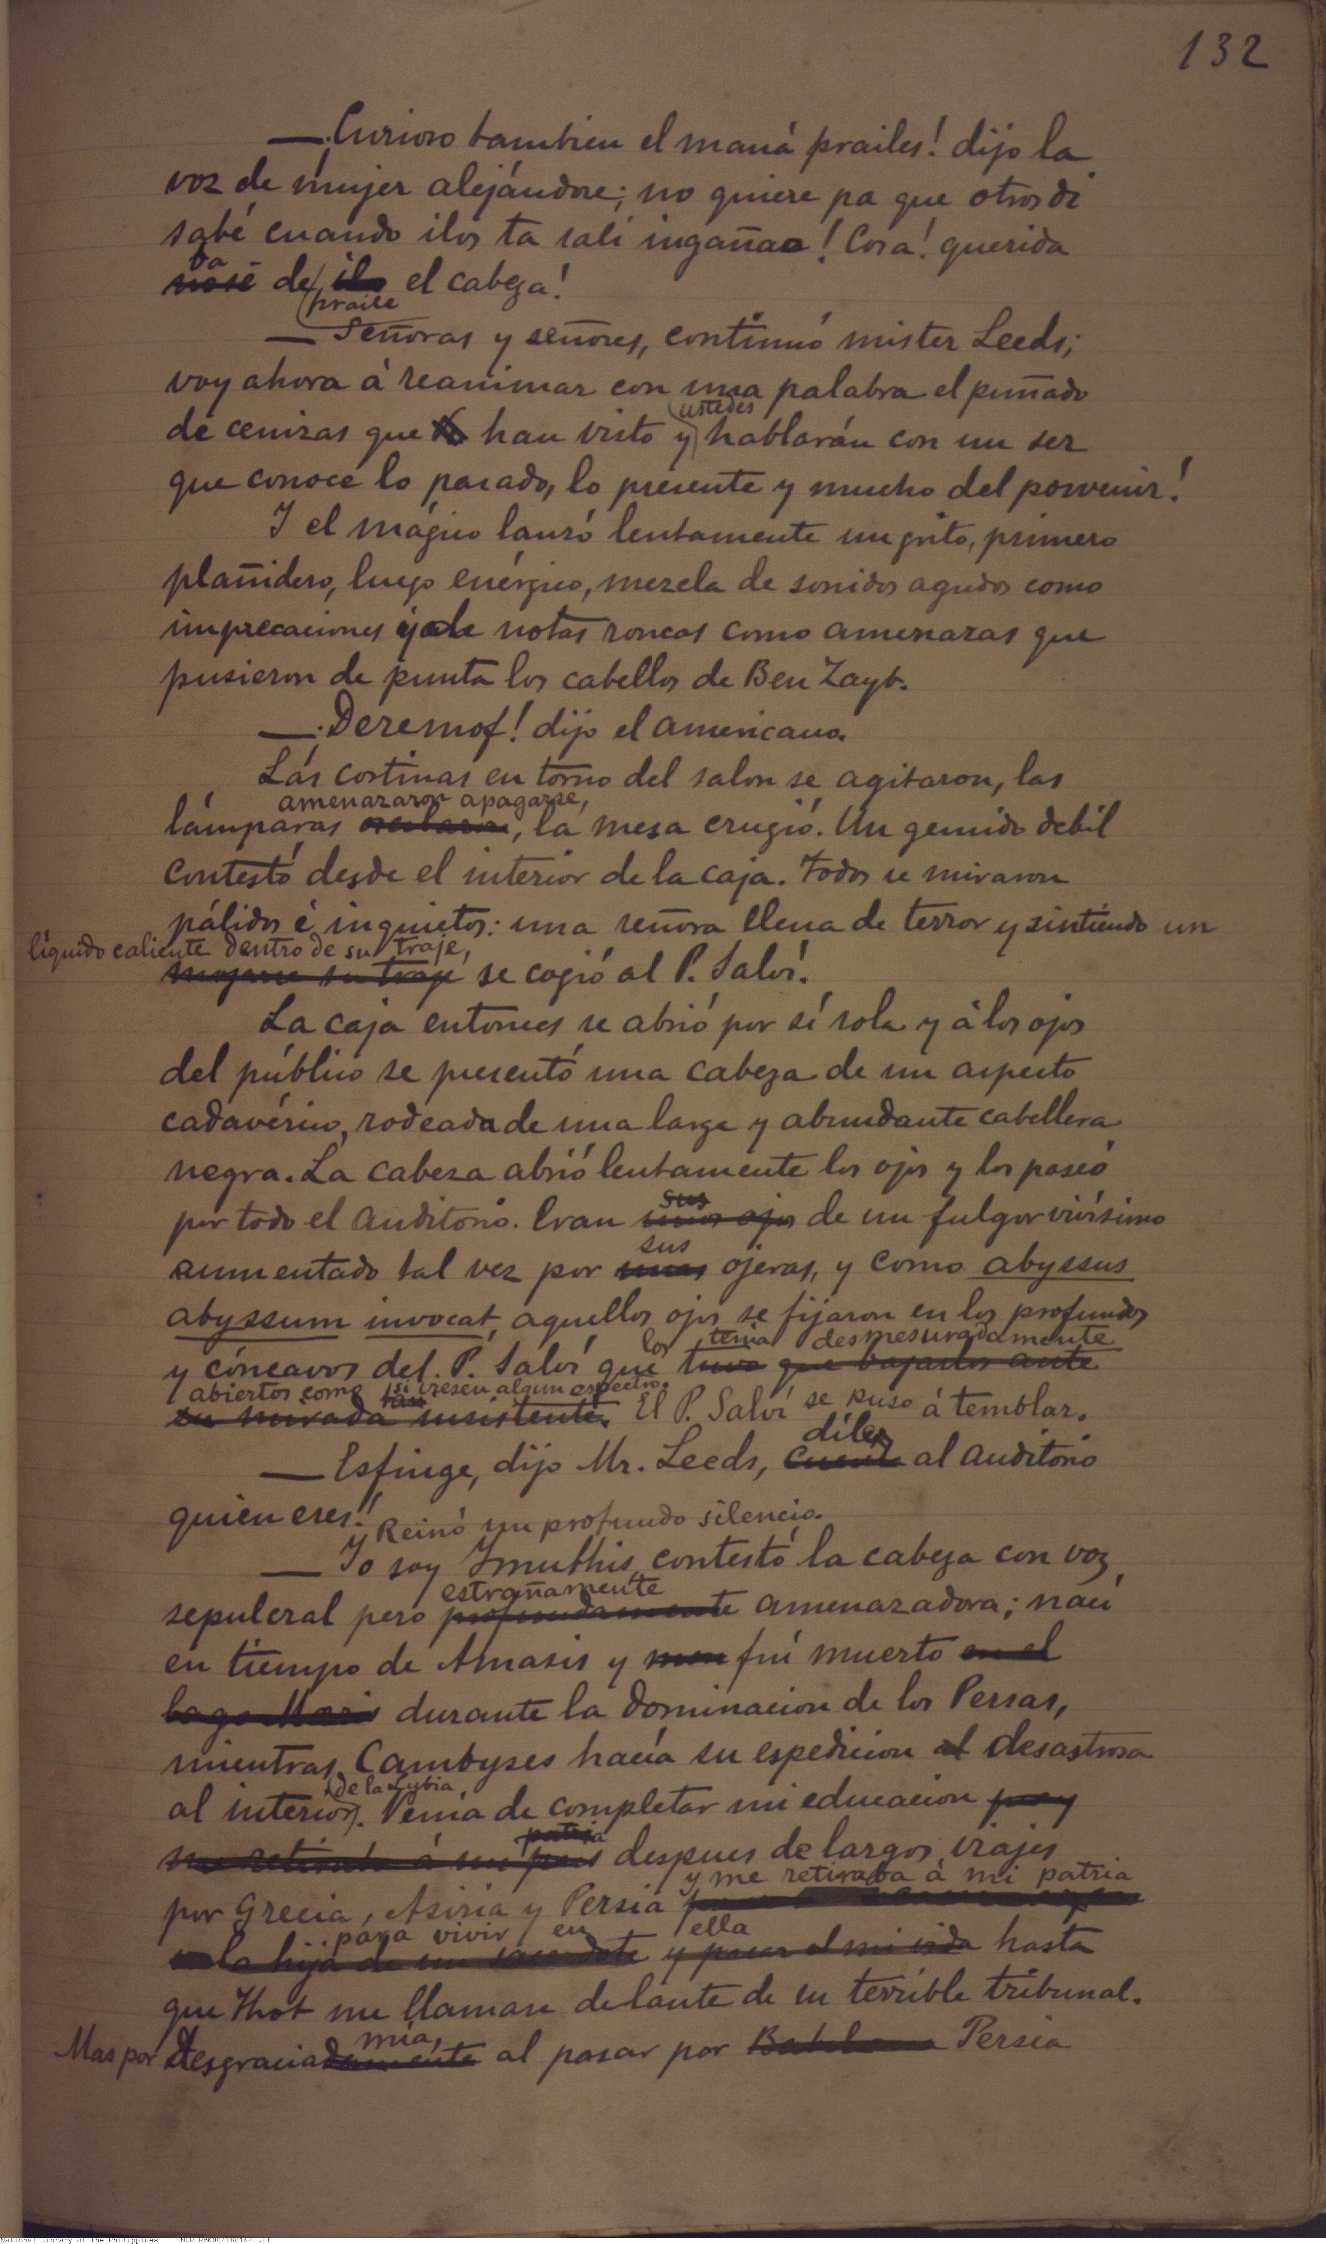 132
—¡Curioso tambien el maná prailes! dijo la
voz de mujer alejándose; no quiere pa que otros di
sabé cuando ilos ta salí ingañao! Cosa! querida
ba
nosé de ilo el cabeza!
praile
— Señoras y señores, continuó mister Leeds;
voy ahora á reanimar con una palabra el puñado
ustedes
de cenizas que han visto y hablarán con un ser
que conoce lo pasado, lo presente y mucho del porvenir!
Y el mágico lanzó lentamente un grito, primero
plañidero, luego enérgico, mezcla de sonidos agudos como
imprecaciones y de notas roncas como amenazas que
pusieron de punta los cabellos de Ben Zayb.
—¡Deremof! dijo el americano.
Las cortinas en torno del salon se agitaron, las
amenazaron apagarse,
lámparas oscilaron, la mesa crugió. Un gemido debil
contestó desde el interior de la caja. Todos se miraron
pálidos é inquietos: una señora llena de terror y sintiendo un
líquido caliente dentro de su traje,
mojarse su traje se cogió al P. Salví.
La caja entonces se abrió por sí sola y á los ojos
del público se presentó una cabeza de un aspecto
cadavérico, rodeada de una larga y abundante cabellera
negra. La cabeza abrió lentamente los ojos y los paseó
sus
por todo el auditorio. Eran unos ojos de un fulgor vivísimo
sus
aumentado tal vez por unas ojeras, y como abyssus
abyssum invocat, aquellos ojos se fijaron en los profundos
los tenia desmesuradamente
y cóncavos del P. Salví que tuvo que bajarlos ante
abiertos como si viesen algun espectro.
su mirada insistente. El P. Salví se puso á temblar.
diles
— Esfinge, dijo Mr. Leeds, cuenta al auditorio
quien eres!
Reinó un profundo silencio.
— Yo soy Imuthis, contestó la cabeza con voz
estrañamente
sepulcral pero profundamente amenazadora; nací
en tiempo de Amasis y fuí muerto en el
lago Maris durante la dominacion de los Persas,
mientras Cambyses hacía su espedicion al desastrosa
de la Lybia
al interior. Venía de completar mi educacion
patria
me retiraba á mi pais despues de largos viajes
y me retiraba á mi patria
por Grecia, Asiria y Persia
para vivir en ella
la hija de un sacerdote y pasar mi vida hasta
que Thot me llamase delante de su terrible tribunal.
mia,
Mas por desgraciadamente al pasar por Persia